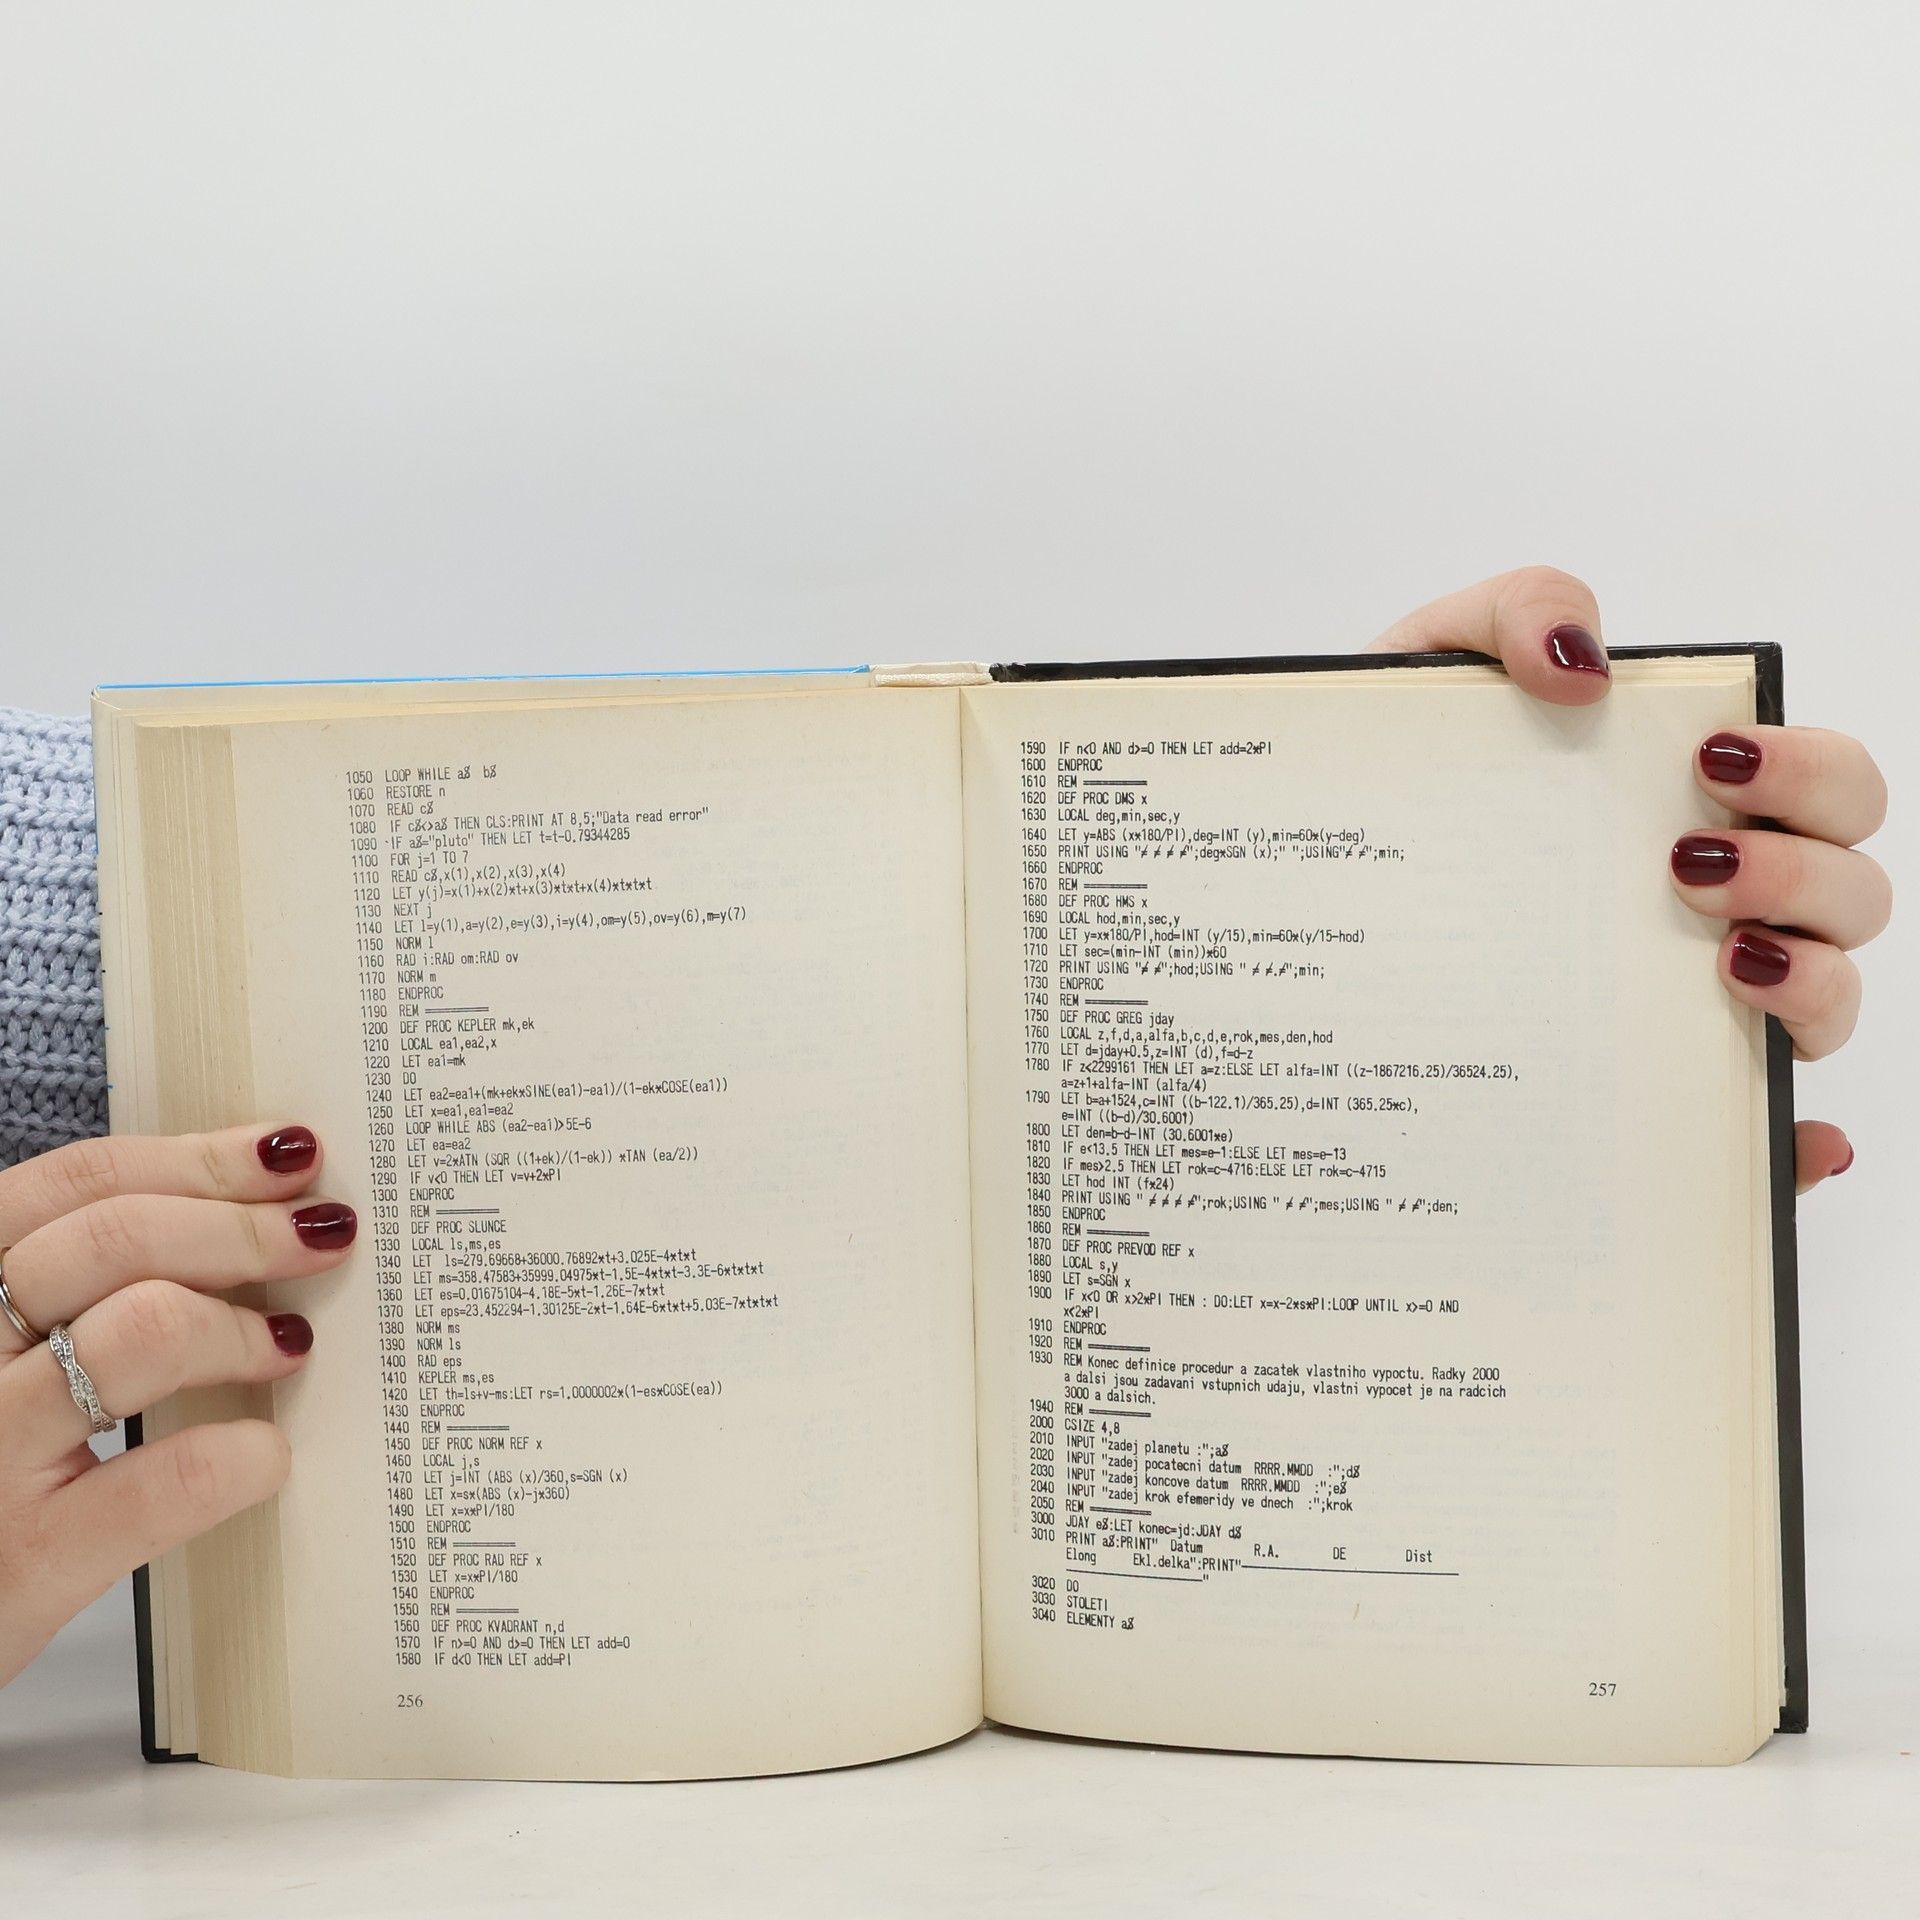 1050 LOOP WHILE a$ b$
1060 RESTORE n
1070 READ c$
1080 IF c$<>a$ THEN CLS:PRINT AT 8,5;"Data read error"
1090 IF a$="pluto" THEN LET t=t-0.79344285
1100 FOR j=1 TO 7
1110 READ c$,x(1),x(2),x(3),x(4)
1120 LET y(j)=x(1)+x(2)*t+x(3)*t*t+x(4)*t*t*t
1130 NEXT j
1140 LET l=y(1),a=y(2),e=y(3),i=y(4),om=y(5),ov=y(6),m=y(7)
1150 NORM l
1160 RAD i:RAD om:RAD ov
1170 NORM m
1180 ENDPROC
1190 REM ══════
1200 DEF PROC KEPLER mk,ek
1210 LOCAL ea1,ea2,x
1220 LET ea1=mk
1230 DO
1240 LET ea2=ea1+(mk+ek*SINE(ea1)-ea1)/(1-ek*COSE(ea1))
1250 LET x=ea1,ea1=ea2
1260 LOOP WHILE ABS (ea2-ea1)>5E-6
1270 LET ea=ea2
1280 LET v=2*ATN (SQR ((1+ek)/(1-ek)) *TAN (ea/2))
1290 IF v<0 THEN LET v=v+2*PI
1300 ENDPROC
1310 REM ══════
1320 DEF PROC SLUNCE
1330 LOCAL ls,ms,es
1340 LET ls=279.69668+36000.76892*t+3.025E-4*t*t
1350 LET ms=358.47583+35999.04975*t-1.5E-4*t*t-3.3E-6*t*t*t
1360 LET es=0.01675104-4.18E-5*t-1.26E-7*t*t
1370 LET eps=23.452294-1.30125E-2*t-1.64E-6*t*t+5.03E-7*t*t*t
1380 NORM ms
1390 NORM ls
1400 RAD eps
1410 KEPLER ms,es
1420 LET th=ls+v-ms:LET rs=1.0000002*(1-es*COSE(ea))
1430 ENDPROC
1440 REM ══════
1450 DEF PROC NORM REF x
1460 LOCAL j,s
1470 LET j=INT (ABS (x)/360,s=SGN (x)
1480 LET x=s*(ABS (x)-j*360)
1490 LET x=x*PI/180
1500 ENDPROC
1510 REM ══════
1520 DEF PROC RAD REF x
1530 LET x=x*PI/180
1540 ENDPROC
1550 REM ══════
1560 DEF PROC KVADRANT n,d
1570 IF n>=0 AND d>=0 THEN LET add=0
1580 IF d<0 THEN LET add=PI
256
1590 IF n<0 AND d>=0 THEN LET add=2*PI
1600 ENDPROC
1610 REM ══════
1620 DEF PROC DMS x
1630 LOCAL deg,min,sec,y
1640 LET y=ABS (x*180/PI),deg=INT (y),min=60*(y-deg)
1650 PRINT USING "≠ ≠ ≠ ≠";deg*SGN (x);" ";USING"≠ ≠";min;
1660 ENDPROC
1670 REM ══════
1680 DEF PROC HMS x
1690 LOCAL hod,min,sec,y
1700 LET y=x*180/PI,hod=INT (y/15),min=60*(y/15-hod)
1710 LET sec=(min-INT (min))*60
1720 PRINT USING "≠ ≠";hod;USING " ≠ ≠.≠";min;
1730 ENDPROC
1740 REM ══════
1750 DEF PROC GREG jday
1760 LOCAL z,f,d,a,alfa,b,c,d,e,rok,mes,den,hod
1770 LET d=jday+0.5,z=INT (d),f=d-z
1780 IF z<2299161 THEN LET a=z:ELSE LET alfa=INT ((z-1867216.25)/36524.25),
a=z+1+alfa-INT (alfa/4)
1790 LET b=a+1524,c=INT ((b-122.1)/365.25),d=INT (365.25*c),
e=INT ((b-d)/30.6001)
1800 LET den=b-d-INT (30.6001*e)
1810 IF e<13.5 THEN LET mes=e-1:ELSE LET mes=e-13
1820 IF mes>2.5 THEN LET rok=c-4716:ELSE LET rok=c-4715
1830 LET hod INT (f*24)
1840 PRINT USING " ≠ ≠ ≠ ≠";rok;USING " ≠ ≠";mes;USING " ≠ ≠";den;
1850 ENDPROC
1860 REM ══════
1870 DEF PROC PREVOD REF x
1880 LOCAL s,y
1890 LET s=SGN x
1900 IF x<0 OR x>2*PI THEN : DO:LET x=x-2*s*PI:LOOP UNTIL x>=0 AND
x<2*PI
1910 ENDPROC
1920 REM ══════
1930 REM Konec definice procedur a zacatek vlastniho vypoctu. Radky 2000
a dalsi jsou zadavani vstupnich udaju, vlastni vypocet je na radcich
3000 a dalsich.
1940 REM ══════
2000 CSIZE 4,8
2010 INPUT "zadej planetu :";a$
2020 INPUT "zadej pocatecni datum RRRR.MMDD :";d$
2030 INPUT "zadej koncove datum RRRR.MMDD :";e$
2040 INPUT "zadej krok efemeridy ve dnech :";krok
2050 REM ══════
3000 JDAY e$:LET konec=jd:JDAY d$
3010 PRINT a$:PRINT" Datum R.A. DE Dist
Elong Ekl.delka":PRINT"____________________
____________"
3020 DO
3030 STOLETI
3040 ELEMENTY a$
257